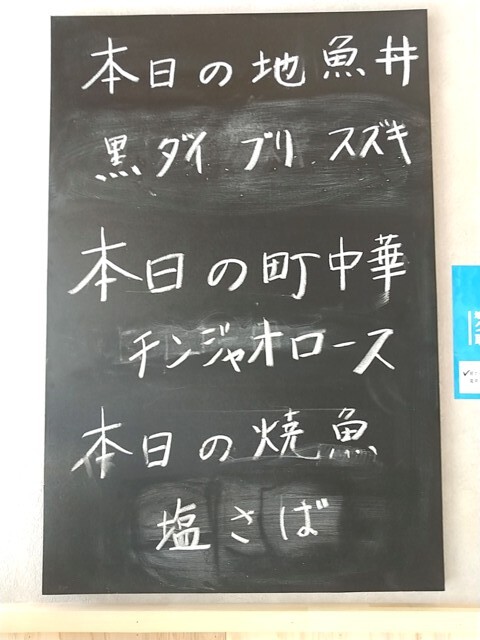 本日の地魚丼
黒ダイ ブリ スズキ
本日の町中華
チンジャオロース
本日の焼魚
塩さば